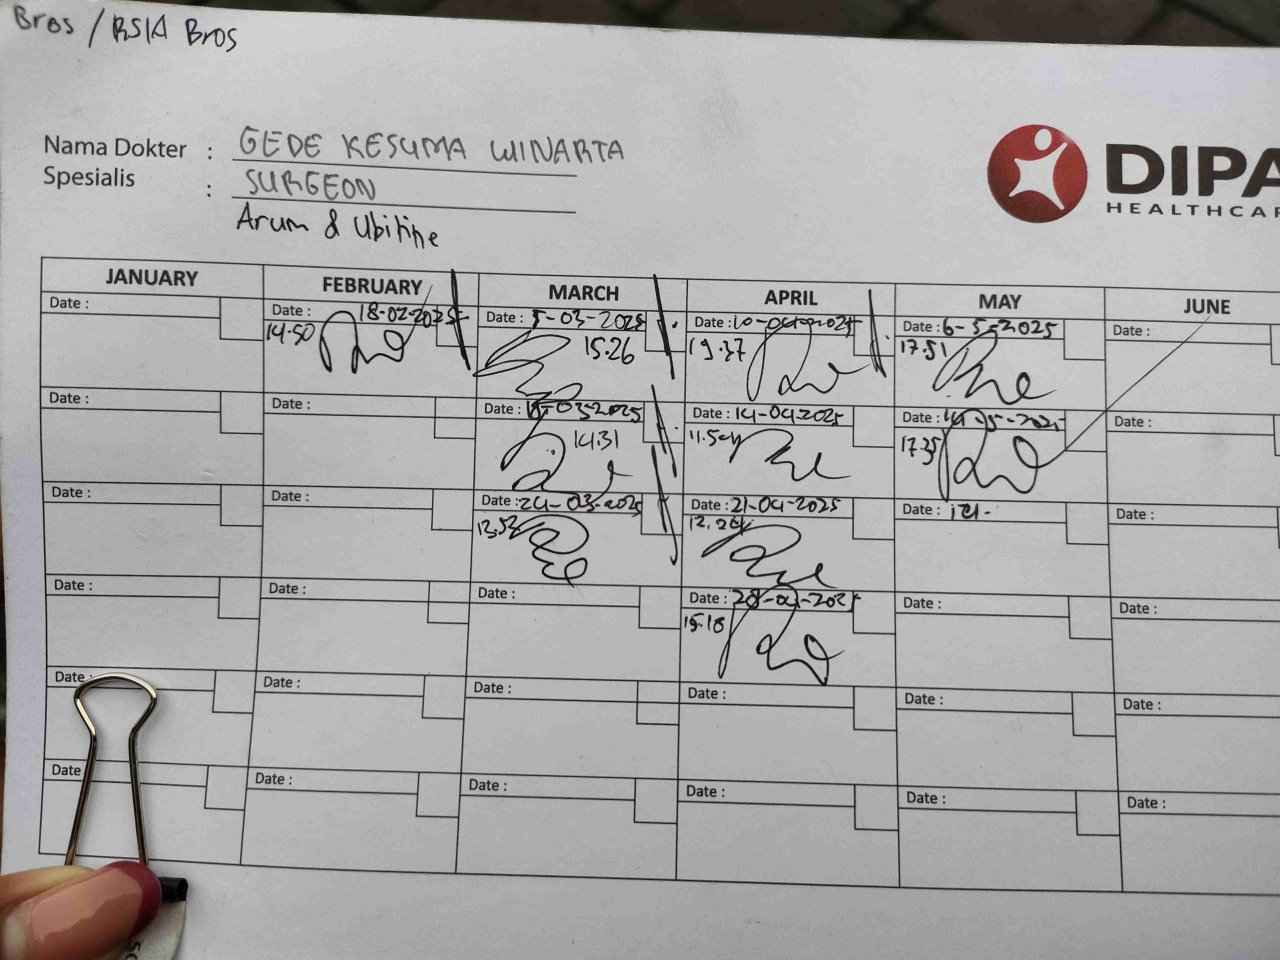 Bros / RSIA Bros
Nama Dokter : GEDE KESUMA WINARTA
Spesialis : SURGEON
Arum & Ubitine
DIPA
HEALTHCAR
JANUARY FEBRUARY MARCH APRIL MAY JUNE
Date : Date : 18-02-2025 Date : 5-03-2025 Date : 10-04-2025 Date : 6-5-2025 Date :
14.50 15.26 19.37 17.51
Date : Date : Date : 03-2025 Date : 14-04-2025 Date : 5-2025 Date :
14.31 11.54 17.35
Date : Date : Date : 24-03-2025 Date : 21-04-2025 Date : 14- Date :
13.53 12.24
Date : Date : Date : Date : 28-04-2025 Date : Date :
15.18
Date : Date : Date : Date : Date : Date :
Date Date : Date : Date : Date : Date :